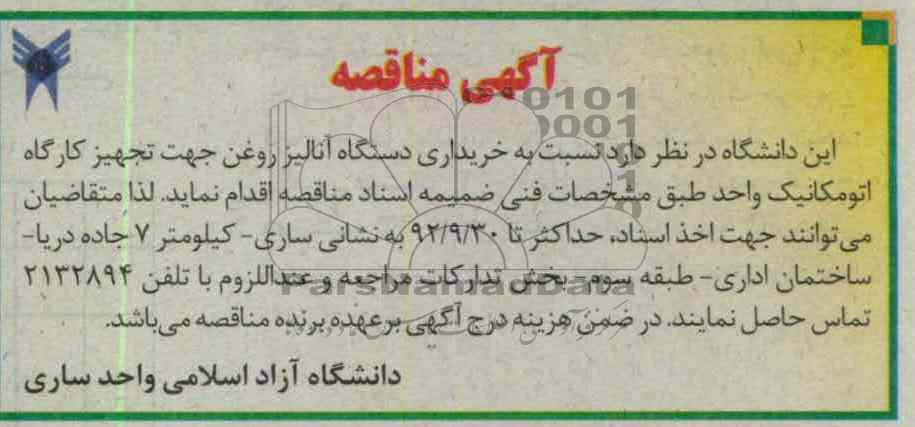 آگهی مناقصه
این دانشگاه در نظر دارد نسبت به خریداری دستگاه آنالیز روغن جهت تجهیز کارگاه
اتومکانیک واحد طبق مشخصات فنی ضمیمه اسناد مناقصه اقدام نماید. لذا متقاضیان
می‌توانند جهت اخذ اسناد، حداکثر تا ۹۲/۹/۳۰ به نشانی ساری- کیلومتر ۷ جاده دریا-
ساختمان اداری- طبقه سوم- بخش تدارکات مراجعه و عنداللزوم با تلفن ۲۱۳۲۸۹۴
تماس حاصل نمایند. در ضمن هزینه درج آگهی برعهده برنده مناقصه می‌باشد.
دانشگاه آزاد اسلامی واحد ساری
ParsNamadData